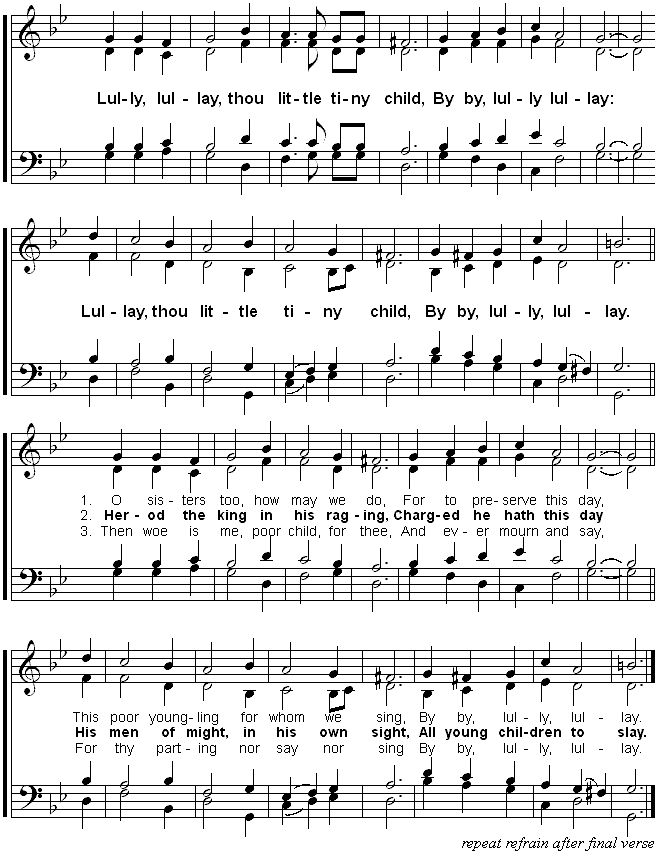 Lul-ly, lul-lay, thou lit-tle ti-ny child, By by, lul-ly lul-lay:
Lul-lay, thou lit-tle ti-ny child, By by, lul-ly, lul-lay.
1. O sis-ters too, how may we do, For to pre-serve this day,
2. Her-od the king in his rag-ing, Charg-ed he hath this day
3. Then woe is me, poor child, for thee, And ev-er mourn and say,
This poor young-ling for whom we sing, By by, lul-ly, lul-lay.
His men of might, in his own sight, All young chil-dren to slay.
For thy part-ing nor say nor sing By by, lul-ly, lul-lay.
repeat refrain after final verse